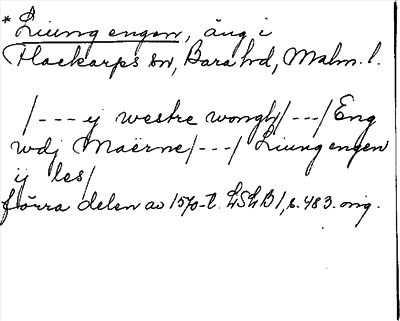 *Liung engen, äng i
Flackarps sn, Bara hd, Malm. l.
/--- ij westre wongh/---/ Eng
wdj Maërne/---/ Liung engen
ij les/
förra delen av 1570-t. LSLB 1, s. 483. orig.